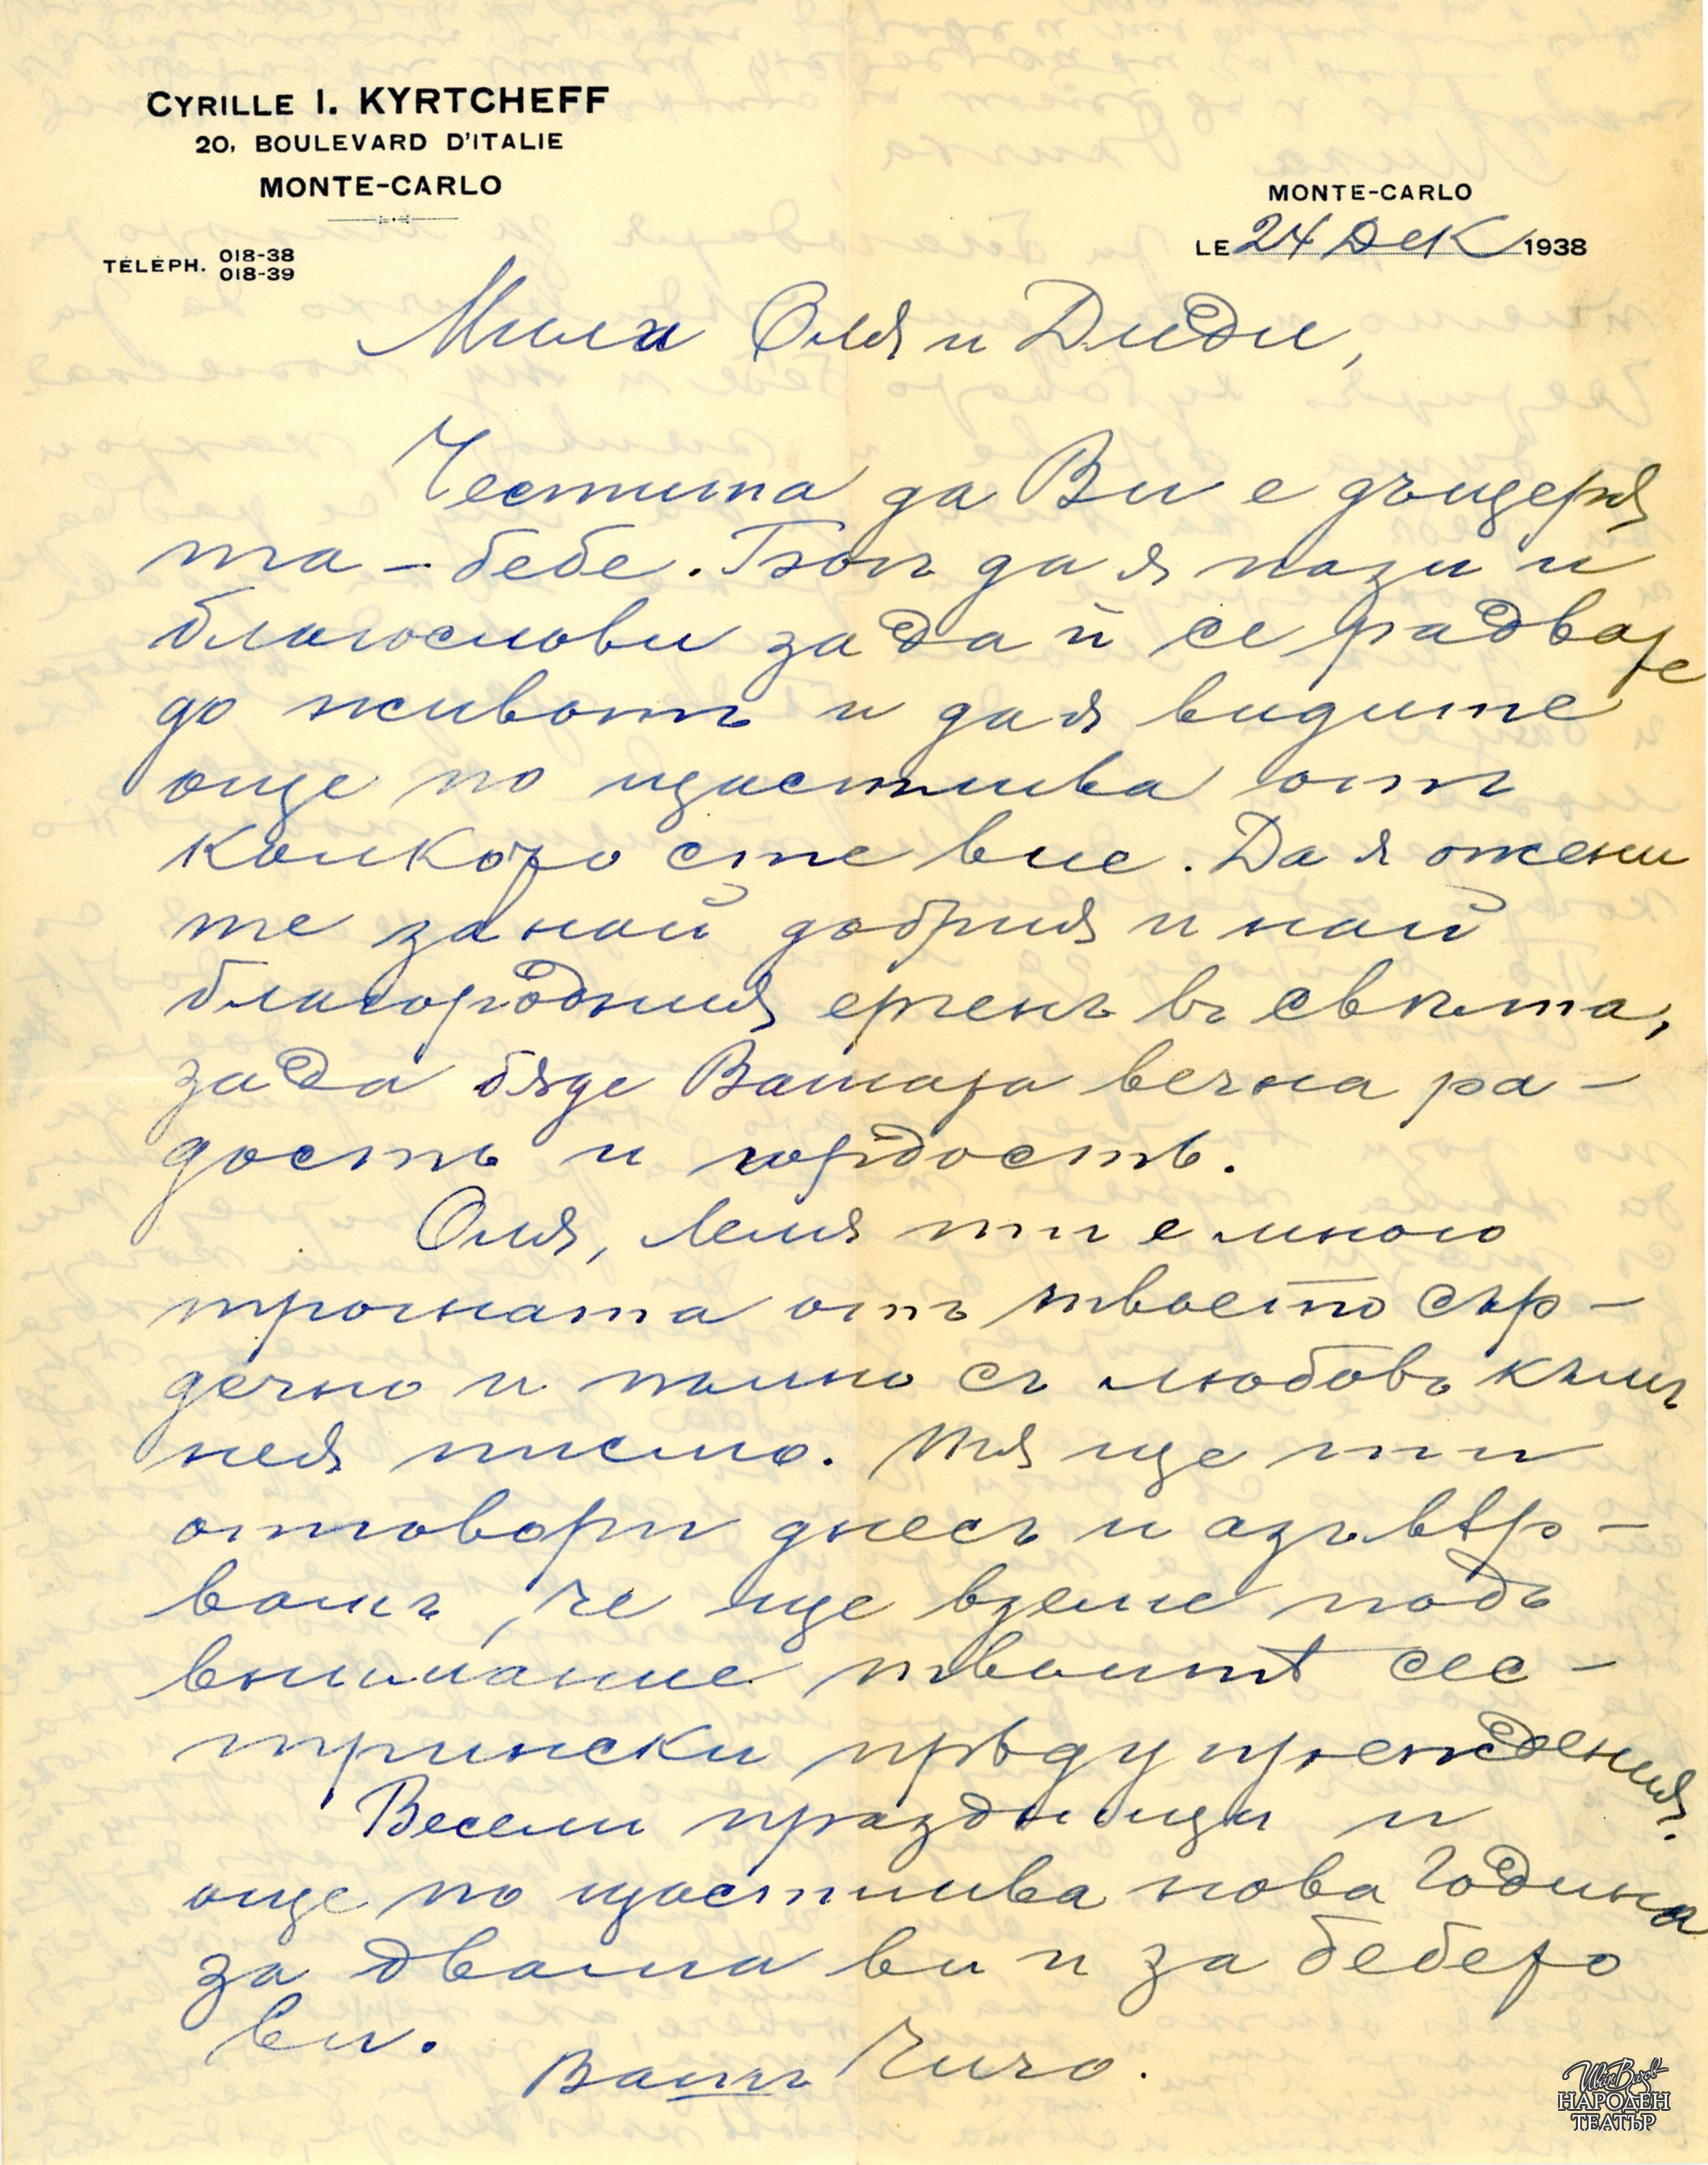 CYRILLE I. KYRTCHEFF
20, BOULEVARD D'ITALIE
MONTE-CARLO
TÉLÉPH. 018-38
018-39
MONTE-CARLO
LE 24 Дек 1938
Мили Оля и Диди,
Честита да Ви е дъщеря
та – бебе. Богъ да я пази и
благослови за да й се радвате
до животъ и да я видите
още по щастлива отъ
колкото сте вие. Да я ожени
те за най добрия и най
благородния ергенъ въ свѣта,
за да бѫде Вашата вечна ра –
дость и гордость.
Оля, Леля ти е много
трогната отъ твоето сър –
дечно и пълно съ любовь къмъ
нея писмо. Тя ще ти
отговори днесъ и азъ вѣр –
вамъ, че ще вземе подъ
внимание твоитѣ сес –
трински прѣдупреждения.
Весели праздници и
още по щастлива нова Година
за двама ви и за бебето
ви.
Вашъ Чичо.
Ив Вазов
НАРОДЕН
ТЕАТЪР